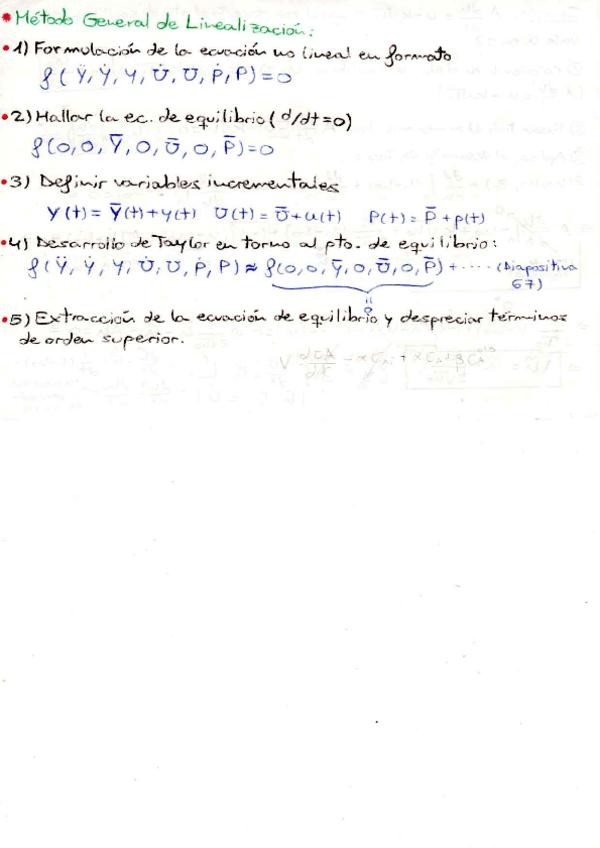 • Método General de Linealización:
• 1) Formulación de la ecuación no lineal en formato
f(Ÿ, Ẏ, Y, U̇, U, Ṗ, P) = 0
• 2) Hallar la ec. de equilibrio (d/dt = 0)
f(0, 0, Ȳ, 0, Ū, 0, P̄) = 0
• 3) Definir variables incrementales
Y(t) = Ȳ(t) + y(t) U(t) = Ū + u(t) P(t) = P̄ + p(t)
• 4) Desarrollo de Taylor en torno al pto. de equilibrio:
f(Ÿ, Ẏ, Y, U̇, U, Ṗ, P) ≈ f(0, 0, Ȳ, 0, Ū, 0, P̄) + ..... (Diapositiva
67)
=
0
• 5) Extracción de la ecuación de equilibrio y despreciar términos
de orden superior.